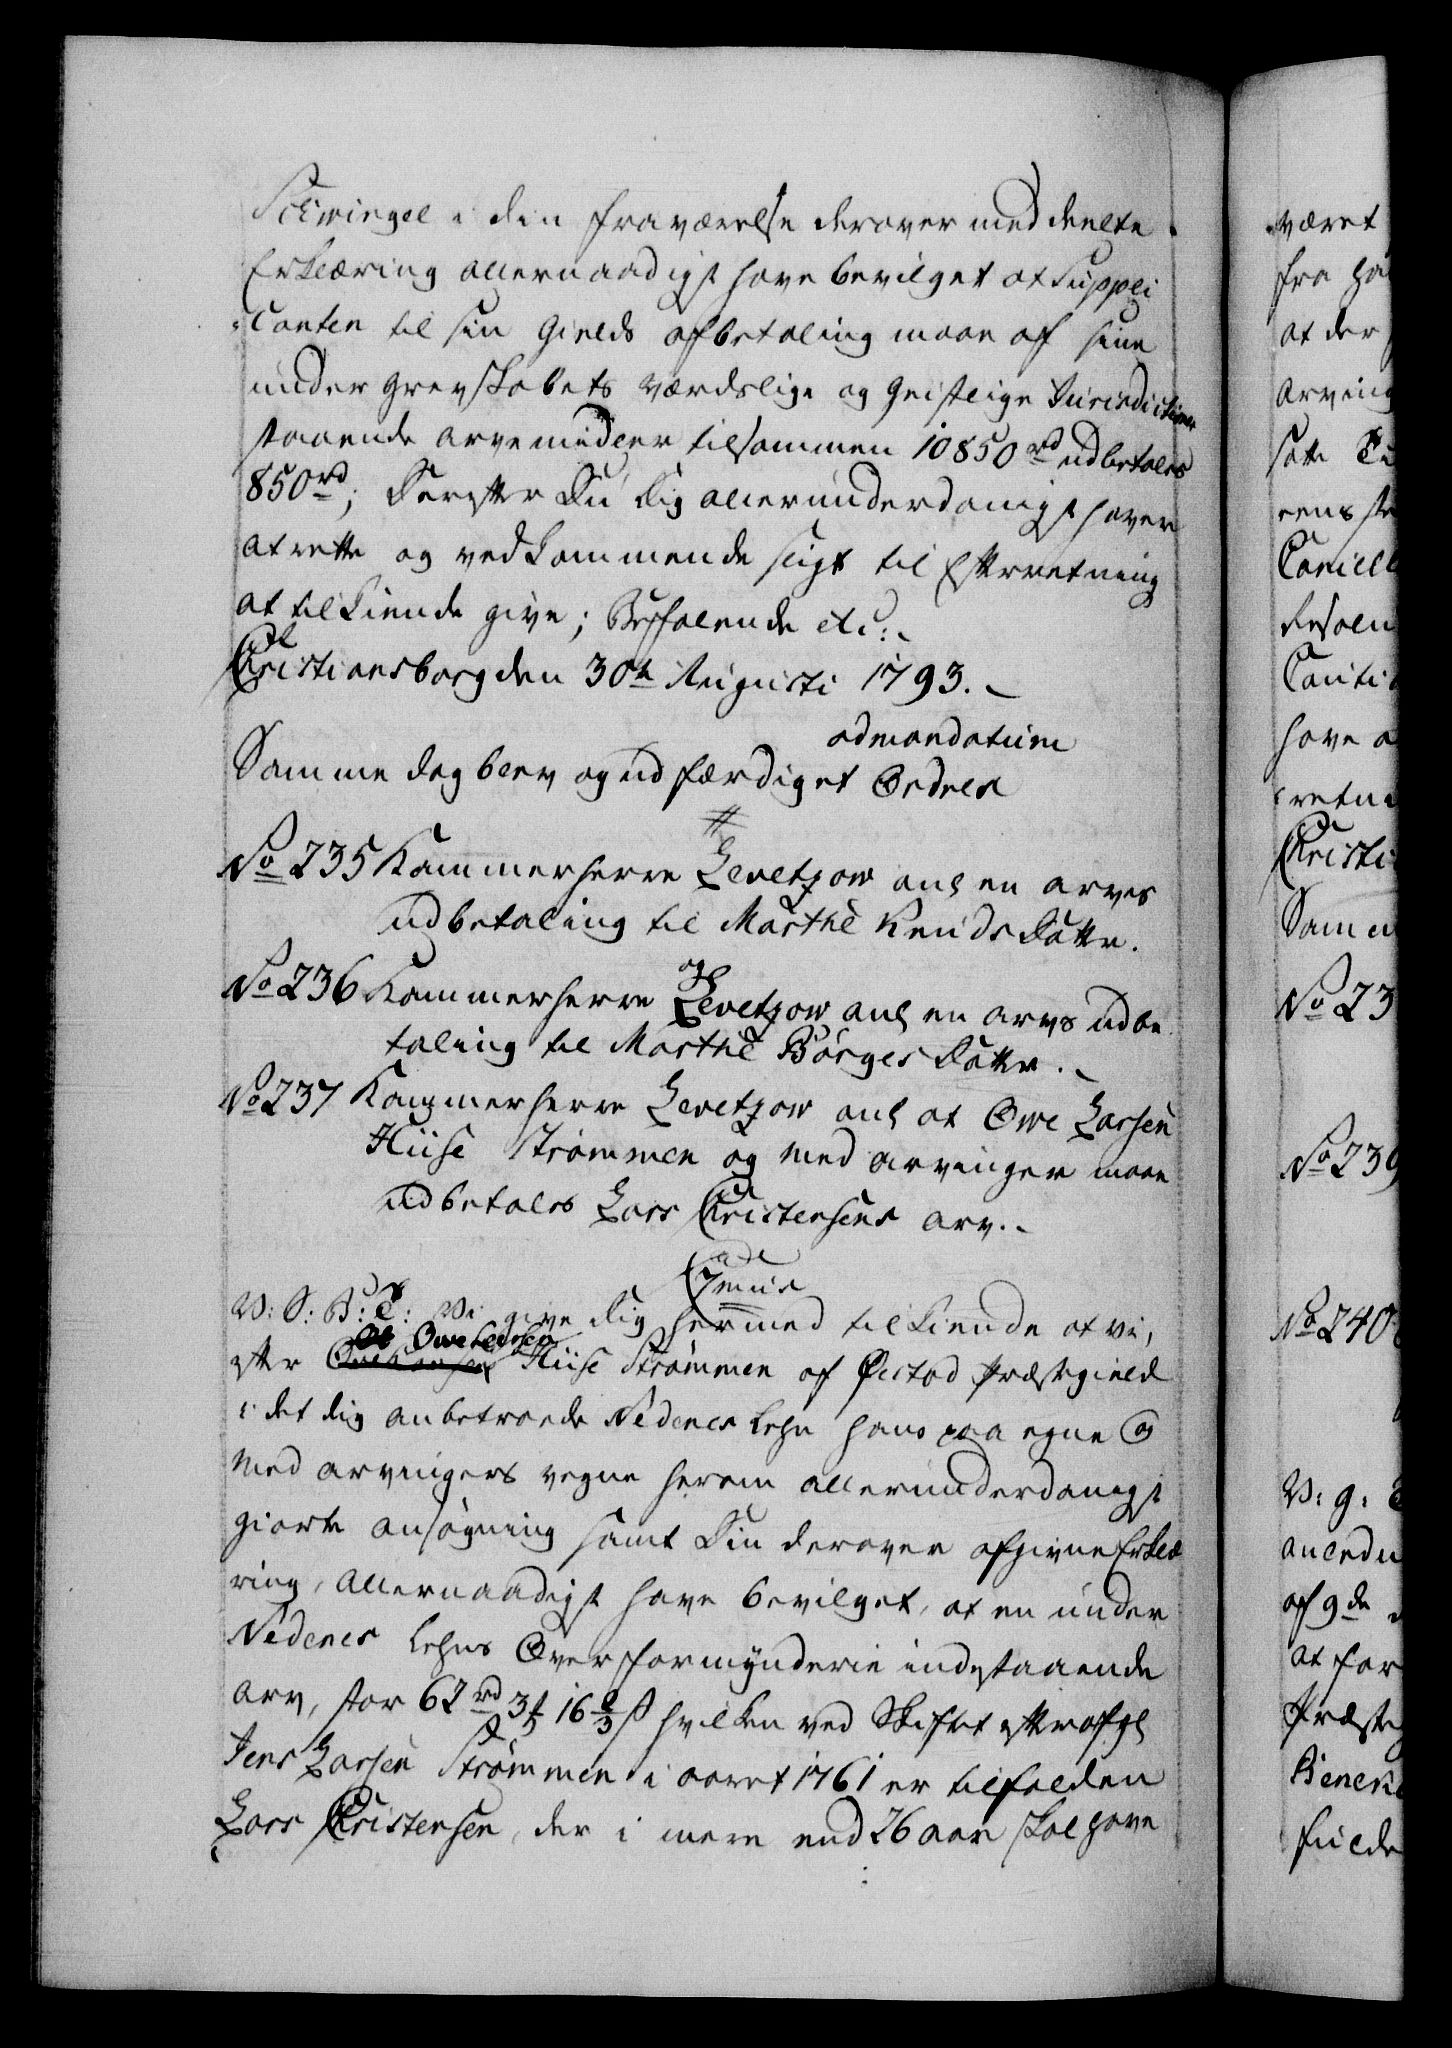 Schwingel i din fraværelse derover meddeelte
Erklæring allernaadigst have bevilget at Suppli
canten til sin Gields afbetaling maae af sine
under Grevskabets værdslige og Geistlige Jurisdictioner
staaende arvemidler tilsammen 10850 rd udbetales
850 rd; Derefter Du dig allerunderdanigst haver
at rette og vedkommende sligt til Efterretning
at tilkiende give; Befalende etc:
Christiansborg den 30te Augusti 1793.
ad mandatum
Samme dag blev og udfærdiget Ordres
No 235 Kammerherre Levetzow anl en arves
udbetaling til Marthe Knudsdatter.
No 236 Kammerherre Levetzow anl en arvs udbe
taling til Marthe Börgesdatter.
No 237 Kammerherre Levetzow anl at Owe Larsen
Huse Strømmen og med arvinger maae
udbetales Lars Christensens arv.
C 7mus
V: S: B: T: Vi give dig hermed tilkiende at vi,
efter Owe Larsen Huse Strømmen af Øiestad Præstegield
i det dig anbetroede Nedenes Lehn hans paa egne og
Med arvingers vegne herom allerunderdanigst
giorte ansøgning samt Din derover afgivne Erklæ
ring, allernaadigst have bevilget, at en under
Nedenes Lehns Overformynderie indestaaende
arv, stor 62 rd 3 16 2/3 s hvilken ved Skiftet efter afgl
Jens Larsen Strømmen i aaret 1761 er tilfalden
Lars Christensen, der i mere end 26 aar skal have
været
fra
at der
arving
satte
eens
Cancell
Resolu
have
Christi
No 23
No 239
No 240
V: g:
anledn
af 9de
at for
Præste
fulde